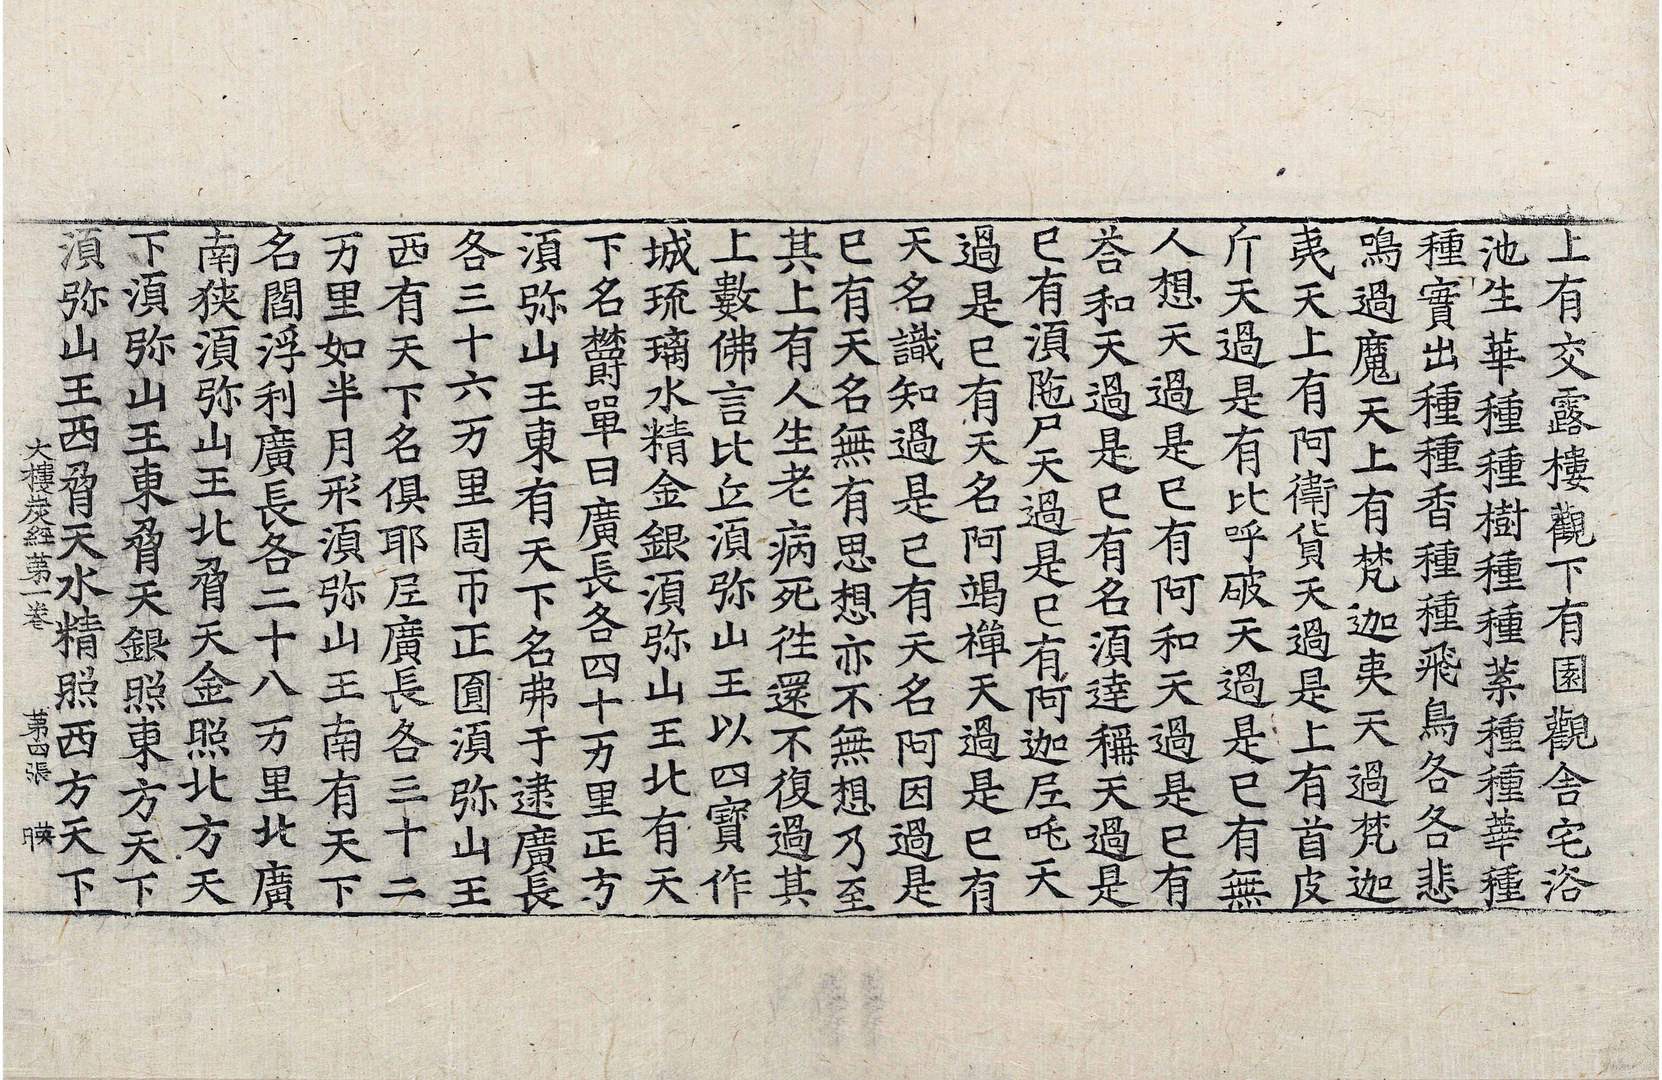 上有交露樓觀下有園觀舍宅浴
池生華種種樹種種葉種種華種
種實出種種香種種飛鳥各各悲
鳴過魔天上有梵迦夷天過梵迦
夷天上有阿衛貨天過是上有首皮
斤天過是有比呼破天過是已有無
人想天過是已有阿和天過是已有
荅和天過是已有名須達稱天過是
已有須陁尸天過是已有阿迦𡰱吒天
過是已有天名阿竭禪天過是已有
天名識知過是已有天名阿因過是
已有天名無有思想亦不無想乃至
其上有人生老病死徃還不復過其
上數佛言比丘須弥山王以四寶作
城琉璃水精金銀須弥山王北有天
下名欝單曰廣長各四十万里正方
須弥山王東有天下名弗于逮廣長
各三十六万里周帀正圓須弥山王
西有天下名俱耶𡰱廣長各三十二
万里如半月形須弥山王南有天下
名閻浮利廣長各二十八万里北廣
南狹須弥山王北脅天金照北方天
下須弥山王東脅天銀照東方天下
須弥山王西脅天水精照西方天下
大樓炭經第一卷 第四張 暎